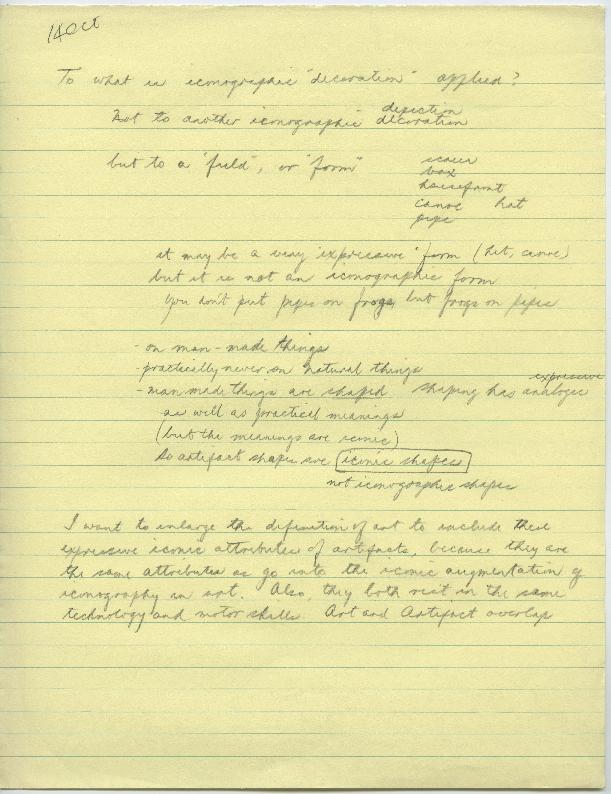 14 Oct
To what is iconographic "decoration" applied?
depiction
Not to another iconographic decoration
but to a "field", or "form"
box
housefront
canoe hat
pipe
it may be a very "expressive" form (hat, canoe)
but it is not an iconographic form
You don't put pipes on frogs, but frogs on pipes
- on man-made things
- practically never on natural things
expressive
- man made things are shaped shaping has analogic
as well as practical meanings
(but the meanings are iconic)
So artifact shapes are iconic shapes
not iconographic shapes
I want to enlarge the definition of art to include these
expressive iconic attributes of artifacts, because they are
the same attributes as go into the iconic augmentation of
iconography in art. Also, they both rest in the same
technology and motor skills. Art and Artifact overlap